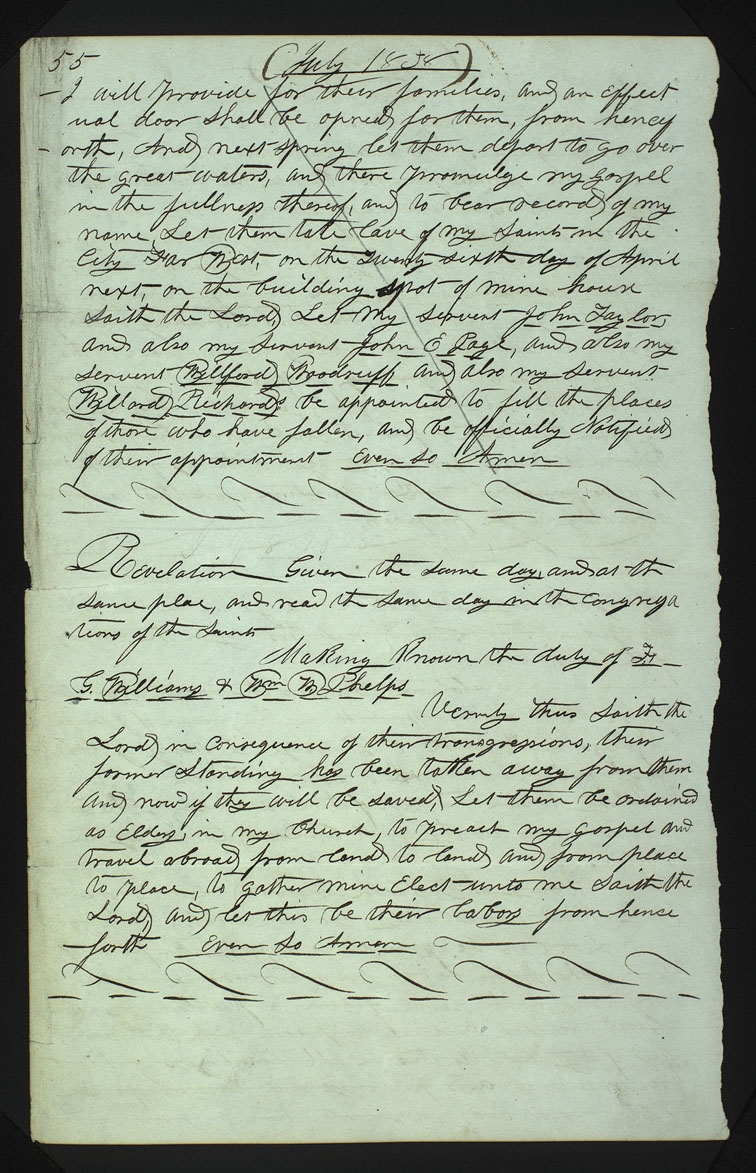 55 (July 1838)
-I will provide for their families, and an effect
ual door shall be opned for them, from hencef
-orth, And next spring let them depart to go over
the great waters, and there promulge my gospel
in the fullness thereof, and to bear record of my
name. Let them take leave of my Saints in the
City Far West, on the Twenty sixth day of April
next, on the building spot of mine house
saith the Lord, Let my servent John Taylor,
and also my servent John E Page, and also my
servent Willford Woodruff and also my servent
Willard Richards be appointed to fill the places
of those who have fallen, and be officially Notified
of their appointment Even so Amen
Revelation Given the same day, and at the
same place, and read the same day in the congrega
tions of the Saints
Making Known the duty of F.
G. Williams & Wm W Phelps
Verrily thus saith the
Lord in consequence of their transgressions, their
former standing has been taken away from them
And now if they will be saved, Let them be ordained
as Elders, in my Church, to preach my gospel and
travel abroad from land to land and from place
to place, to gather mine Elect unto me saith the
Lord, and let this be their labors from hence
-forth Even So Amen